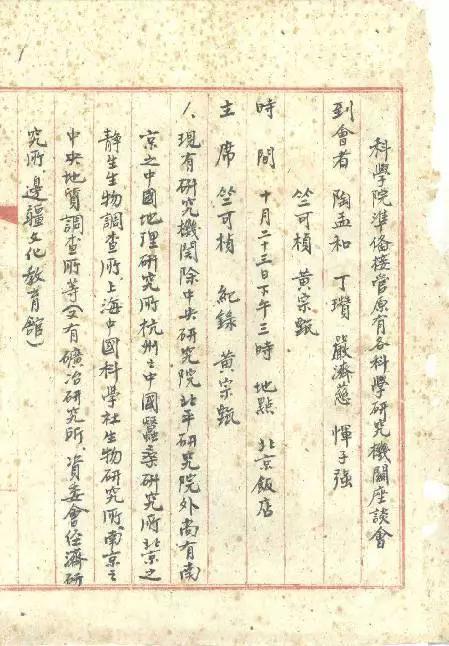 科學院準備接管原有各科學研究機關座談會
到會者 陶孟和 丁瓚 嚴濟慈 惲子強
竺可楨 黃宗甄
時間 十月二十三日下午三時 地點 北京飯店
主席 竺可楨 紀錄 黃宗甄
1、現有研究機関除中央研究院北平研究院外尚有南
京之中國地理研究所杭州之中國蠶桑研究所北京之
静生生物調查所上海中國科學社生物研究所南京之
中央地質調查所等(又有礦冶研究所、資委會經濟研
究所、邊疆文化教育館)